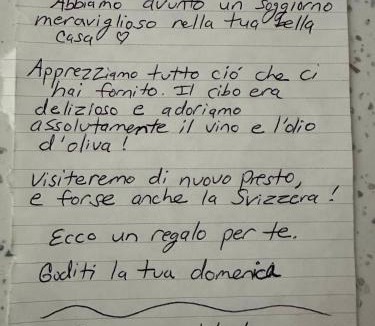 Abbiamo avuto un soggiorno
meraviglioso nella tua bella
casa ♡
Apprezziamo tutto ciò che ci
hai fornito. Il cibo era
delizioso e adoriamo
assolutamente il vino e l'olio
d'oliva!
Visiteremo di nuovo presto,
e forse anche la Svizzera!
Ecco un regalo per te.
Goditi la tua domenica